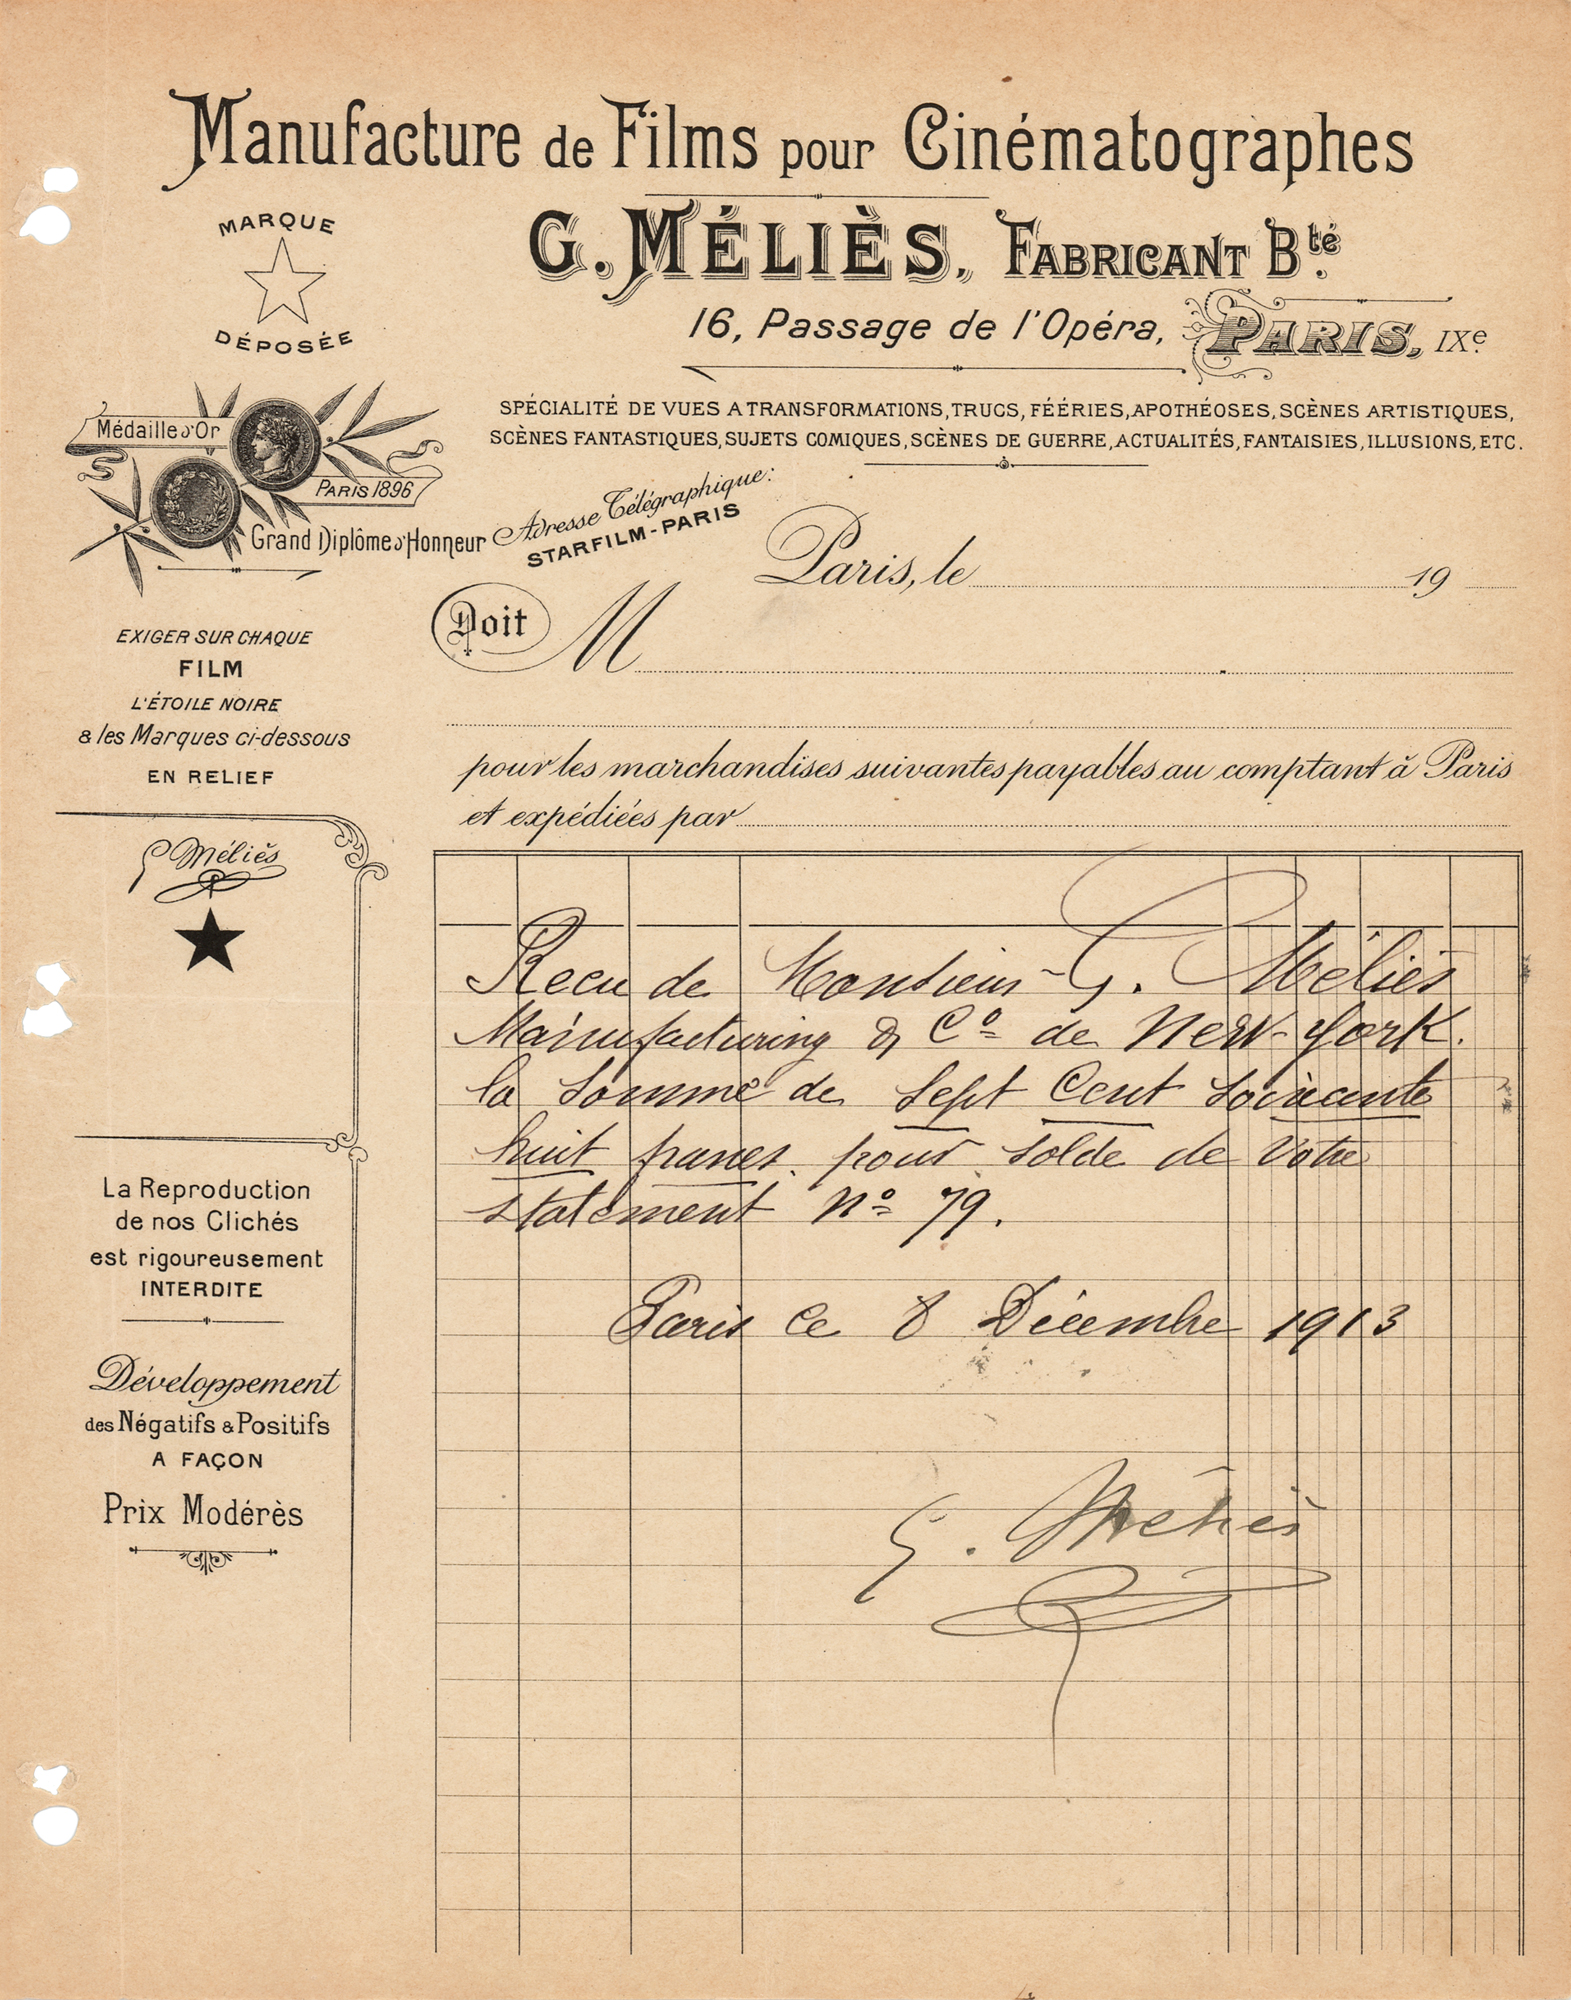 Manufacture de Films pour Cinématographes
G. MÉLIÈS, FABRICANT Bté.
16, Passage de l'Opéra, PARIS, IXe.
MARQUE
DÉPOSÉE
SPÉCIALITÉ DE VUES A TRANSFORMATIONS, TRUCS, FÉÉRIES, APOTHÉOSES, SCÈNES ARTISTIQUES,
SCÈNES FANTASTIQUES, SUJETS COMIQUES, SCÈNES DE GUERRE, ACTUALITÉS, FANTAISIES, ILLUSIONS, ETC.
Médaille d'Or
PARIS 1896
Grand Diplôme d'Honneur
Adresse Télégraphique:
STARFILM-PARIS
Paris, le 19
Doit M
pour les marchandises suivantes payables au comptant à Paris
et expédiées par
EXIGER SUR CHAQUE
FILM
L'ÉTOILE NOIRE
& les Marques ci-dessous
EN RELIEF
G Méliès
La Reproduction
de nos Clichés
est rigoureusement
INTERDITE
Développement
des Négatifs & Positifs
A FAÇON
Prix Modérès
Recu de Monsieur G. Méliès
Manufacturing & Co de New-York.
la somme de Sept Cent soixante
huit francs. pour solde de Votre
statement No 79.
Paris le 8 Décembre 1913
G. Méliès